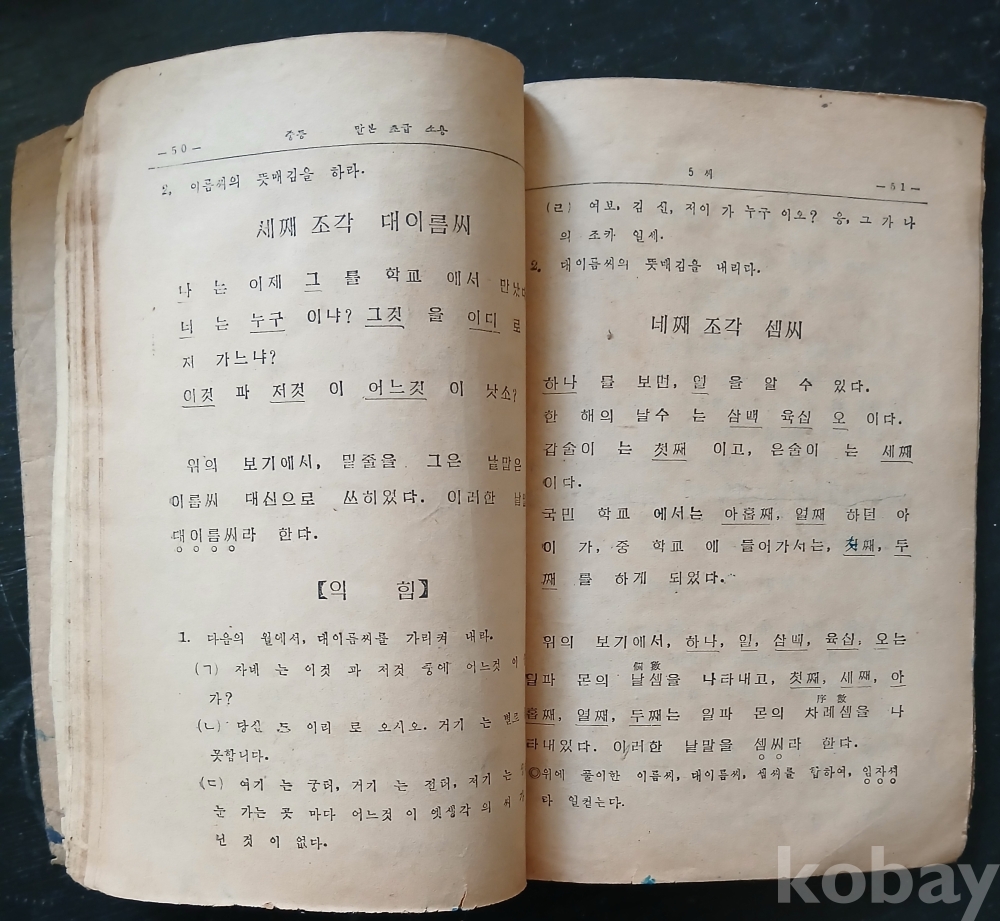 —50—
중등 말본 초급 소용
2. 이름씨의 뜻매김을 하라.
세째 조각 대이름씨
나 는 어제 그 를 학교 에서 만났다
너 는 누구 이냐? 그것 을 어디 로
저 가느냐?
이것 과 저것 이 어느것 이 낫소?
위의 보기에서, 밑줄을 그은 낱말은
이름씨 대신으로 쓰히었다. 이러한
대이름씨라 한다.
【익 힘】
1. 다음의 월에서, 대이름씨를 가리켜 내라.
(ㄱ) 자네 는 이것 과 저것 중에 어느것 이
가?
(ㄴ) 당신 도 이리 로 오시오. 거기 는
못합니다.
(ㄷ) 여기 는 궁터, 거기 는 절터, 저기 는
눈 가는 곳 마다 어느것 이 옛생각 의
닌 것 이 없다.
5 씨
—51—
(ㄹ) 여보, 김 선, 저이 가 누구 이오? 응, 그 가 나
의 조카 일세.
2. 대이름씨의 뜻매김을 내리다.
네째 조각 셈씨
하나 를 보면, 열 을 알 수 있다.
한 해의 날수 는 삼백 육십 오 이다.
갑술이 는 첫째 이고, 은술이 는 세째
이다.
국민 학교 에서는 아홉째, 열째 하던 아
이 가, 중 학교 에 들어가서는, 첫째, 두
째 를 하게 되었다.
위의 보기에서, 하나, 일, 삼백, 육십, 오는
일과 몬의 날셈을 나타내고, 첫째, 세째, 아
個數
홉째, 열째, 두째는 일과 몬의 차례셈을 나
序數
타내었다. 이러한 낱말을 셈씨라 한다.
◎위에 풀이한 이름씨, 대이름씨, 셈씨를 합하여, 임자씨
라 일컫는다.
kobay